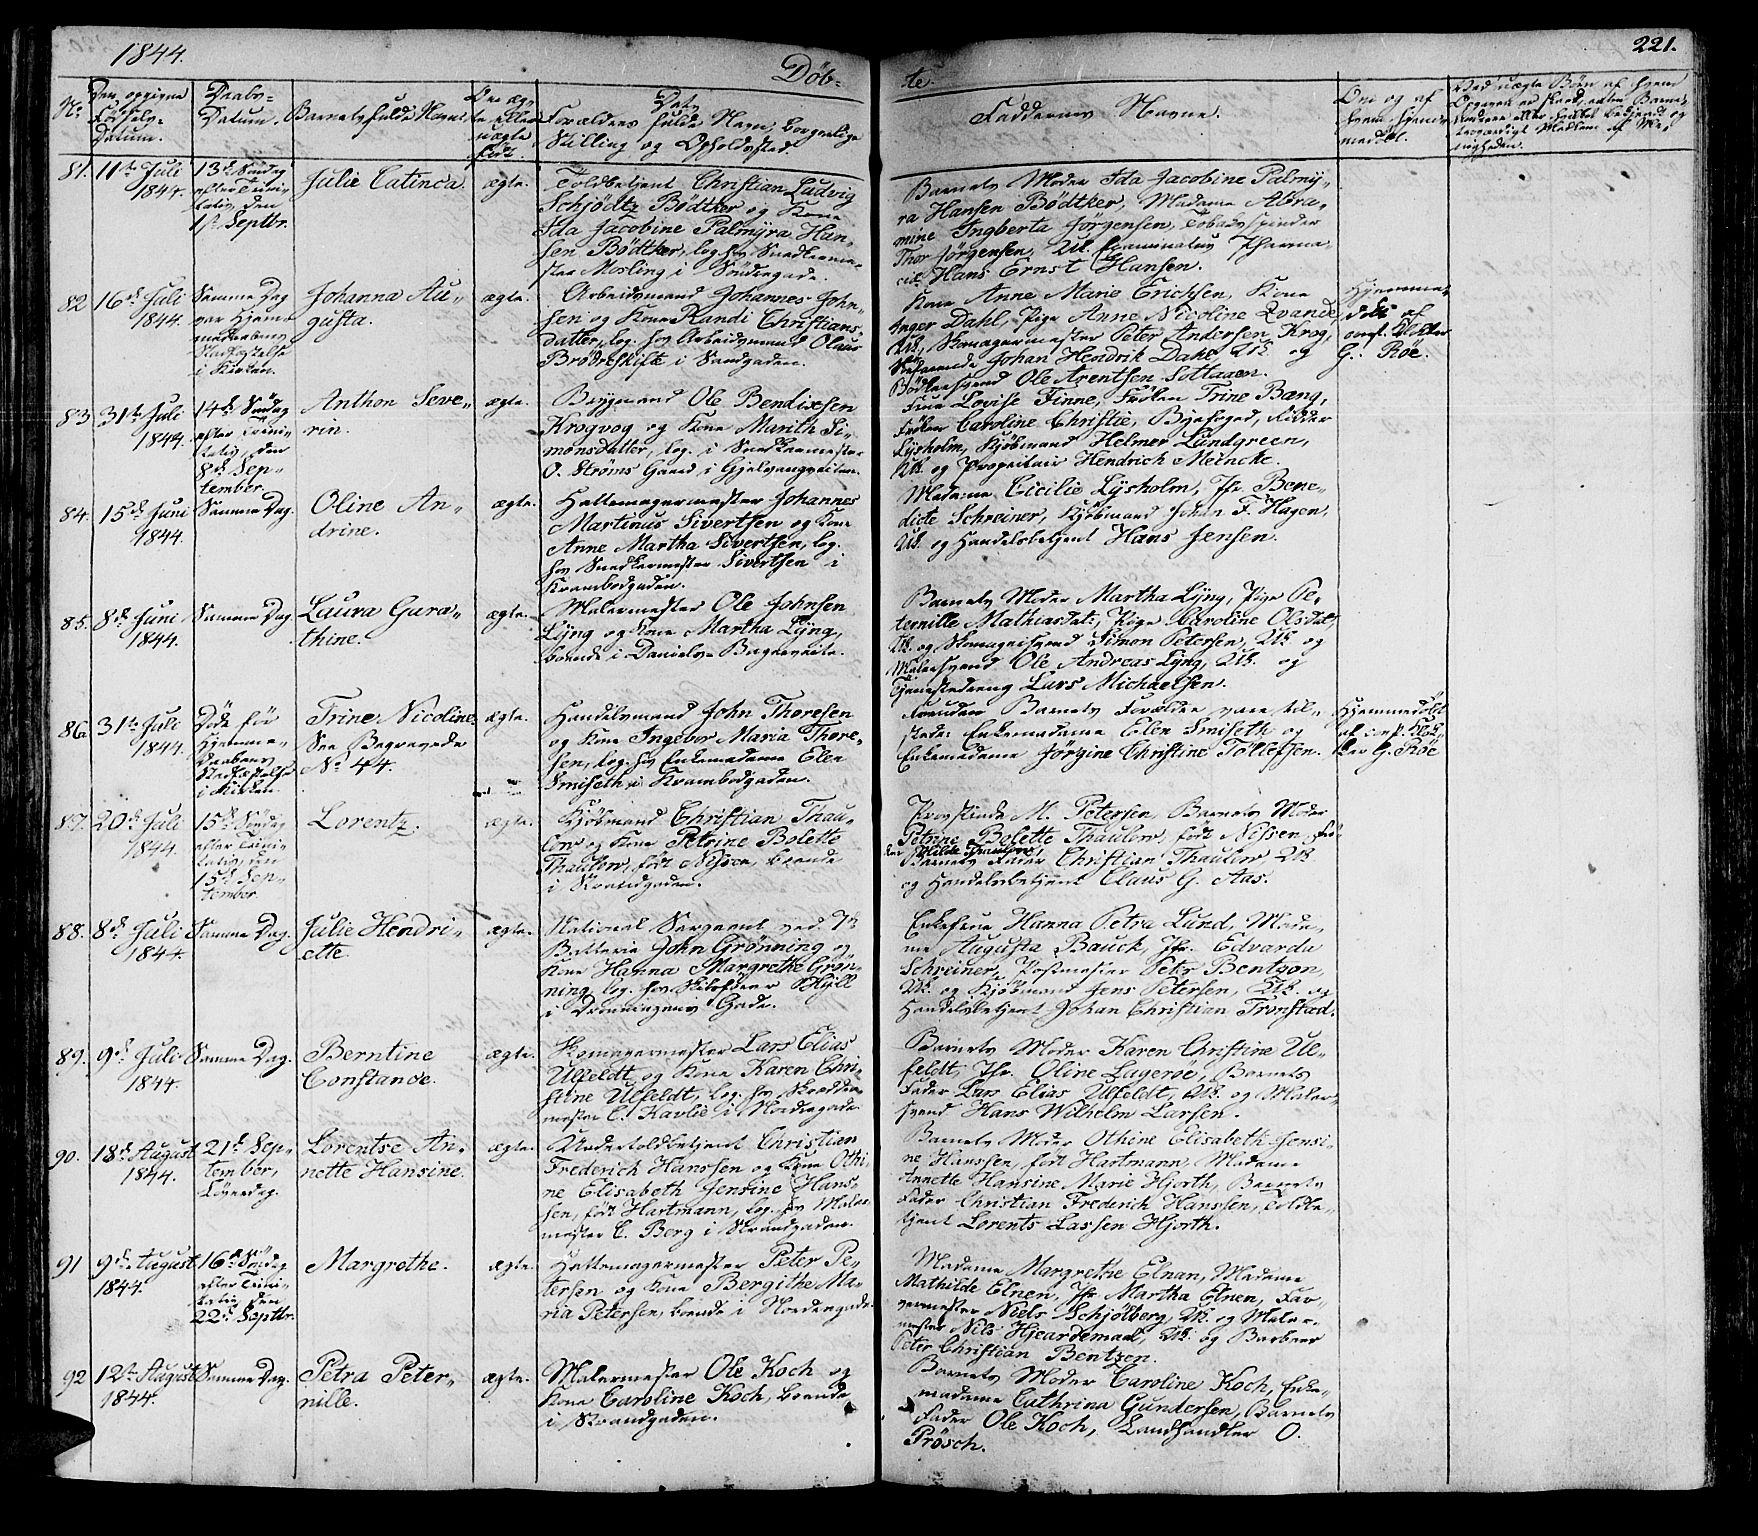 1844.
221.
Døb-
te.
No.
Den opgivne
Fødsels-
Datum.
Daabs-
Datum.
Barnets fulde Navn.
Om æg-
te eller
uægte
født.
Forældres fulde Navn, borgerlige
Stilling og Opholdssted
Faddernes Navne.
Om og af
hvem hjem-
medøbt.
81. 11te Juli
1844.
13de Søndag
efter Trini-
tatis, den
1ste Septbr.
Julie Catinca.
ægte.
Toldbetjent Christian Ludvig
Schjödtz Bödtker og Kone
Ida Jacobine Palmÿra Han-
sen Bödtker, log. hos Snedkerme-
ster Mosling i Söndregade.
Barnets Moder Ida Jacobine Palmÿ-
ra Hansen Bödtker, Madame Abra-
mine Ingberta Jörgensen, Tobakspinder
Thor Jörgensen, Uk. Examinatus Pharma-
cie Hans Ernst Hansen.
82. 16de Juli
1844.
Samme Dag
var Hjemme-
Stadfæstelse
i Kirken.
Johanna Au-
gusta.
ægte.
Arbeidsmand Johannes John-
sen og Kone Randi Christians-
datter, log. hos Arbeidsmand Olaus
Brödreskift i Sandgaden.
Kone Anne Marie Ericksen, Kone
Inger Dahl, Pige Anne Nicoline Qvande,
Uk, Skomagermester Peter Andersen Krog,
Johan Hendrik Dahl, Uk og
Bödkersvend Ole Arentsen Solta​aen.
Hjemme-
døbt af
const. Klokker
G. Röe.
83. 31te Juli
1844.
14de Søndag
efter Trini-
tatis, den
8de Sep-
tember.
Anthon Seve-
rin.
ægte.
Bÿgmand Ole Bendixsen
Krogvog og Kone Marith Si-
monsdatter, log. i Snedkermester
O. Ströms Gaard i Gjelvangveiten.
Frue Lovise Finne, Frøken Trine Bang,
Frøken Caroline Christie, Byefoged, Ridder
Lÿsholm, Kjøbmand Helmer Lundgreen,
Uk. og Proprietair Hendrich Meincke.
84. 15de Juni
1844.
Samme Dag.
Oline An-
drine.
ægte.
Hattemagermester Johannes
Martinus Sivertsen og Kone
Anne Martha Sivertsen, log.
hos Snedkermester Sivertsen i
Krambodgaden.
Madame Cicilie Lÿsholm, Jfr. Bene-
dicte Schreiner, Kjøbmand Johan F. Hagen,
Uk. og Handelsbetjent Hans Jensen.
85. 8de Juni
1844.
Samme Dag.
Laura Gura-
thine.
ægte.
Malermester Ole Johnsen
Lÿng og Kone Martha Lÿng,
boende i Daniels-Bagerveite.
Barnets Moder Martha Lÿng, Pige Pe-
ternille Mathiasdat:, Pige Caroline Olsdat,
Uk. og Skomagersvend Simon Petersen, Uk. og
Malersvend Ole Andreas Lÿng, Uk. og
Tjenestedreng Lars Michaelsen.
86. 31te Juli
1844.
Døde før
Hjemme-
daabens
Stadfæstelse
i Kirken.
Trine Nicoline
See Begravede
No. 44.
ægte.
Handelsmand John Thoresen
og Kone Ingebor Maria Thore-
sen, log. hos Enkemadame Elen
Smiseth i Krambodgaden.
Foruden Barnets Forældre vare til-
stede: Enkemadame Elen Smiseth og
Enkemadame Jörgine Christine Tollefsen.
Hjemmedøbt
af const. Klok-
ker G. Röe
87. 20de Juli
1844.
15de Søndag
efter Trini-
tatis, den
15de Sep-
tember.
Lorentz.
ægte.
Kjøbmand Christian Thau-
low og Kone Petrine Bolette
Thaulow, født Nissen, boende
i Strandgaden.
Provstinde M. Petersen, Barnets Moder
Petrine Bolette Thaulow, født Nissen, Frø-
ken Hilde Thaulow,
Barnets Fader Christian Thaulow Uk
og Handelsbetjent Claus G. Aas.
88. 8de Juli
1844.
Samme Dag.
Julie Hendri-
ette.
ægte.
National Sergeant ved 7de
Batterie John Grönning og
Kone Hanna Margrethe Grön-
ning, log. hos Skibsfører Schjell
i Dronningens Gade.
Enkefrue Hanna Petra Lund, Mada-
me Augusta Bauck, Jfr. Edvarda
Schreiner, Postmester Petr Bentzon,
Uk. og Kjøbmand Jens Petersen, Uk. og
Handelsbetjent Johan Christian Tronstad.
89. 9de Juli
1844.
Samme Dag.
Berntine
Constance.
ægte.
Skomagermester Lars Elias
Ulfeldt og Kone Karen Chri-
stine Ulfeldt, log. hos Skrædder-
mester C. Kavlie i Nordregade.
Barnets Moder Karen Christine Ul-
feldt, Jfr. Oline Lugeroe, Barnets
Fader Lars Elias Ulfeldt, Uk. og Maler-
svend Hans Wilhelm Larsen.
90. 18de August
1844.
21de Sep-
tember,
Löverdag.
Lorentse An-
nette Hansine.
ægte.
Undertoldbetjent Christian
Frederich Hanssen og Kone Othi-
ne Elisabeth Jensine Hans-
sen, født Hartmann, log. hos Maler-
mester C. Berg i Strandgaden.
Barnets Moder Othine Elisabeth Jensi-
ne Hanssen, født Hartmann, Madame
Annette Hansine Marie Hjorth, Barnets
Fader Christian Frederich Hanssen, Toldbe-
tjent Lorents Lassen Hjorth.
91 9de August
1844.
16de Søndag
efter Trini-
tatis, den
22de Septbr.
Margrethe.
ægte.
Hattemagermester Peter Pe-
tersen og Kone Bergithe Ma-
ria Petersen, boende i Nordregade.
Madame Margrethe Elnan, Madame
Mathilde Elnen, Jfr Martha Elnen, Far-
vermester Niels Schjölberg, Uk. og Maler-
mester Nils Hjeardemaal, Uk. og Barbeer
Peter Christian Bentzen.
92 12te August
1844.
Samme Dag.
Petra Peter-
nille.
ægte.
Malermester Ole Koch og
Kone Caroline Koch, boende
i Strandgaden.
Barnets Moder Caroline Koch, Enke-
madame Cathrina Gundersen, Barnets
Fader Ole Koch, Landhandler O.
Prösch.